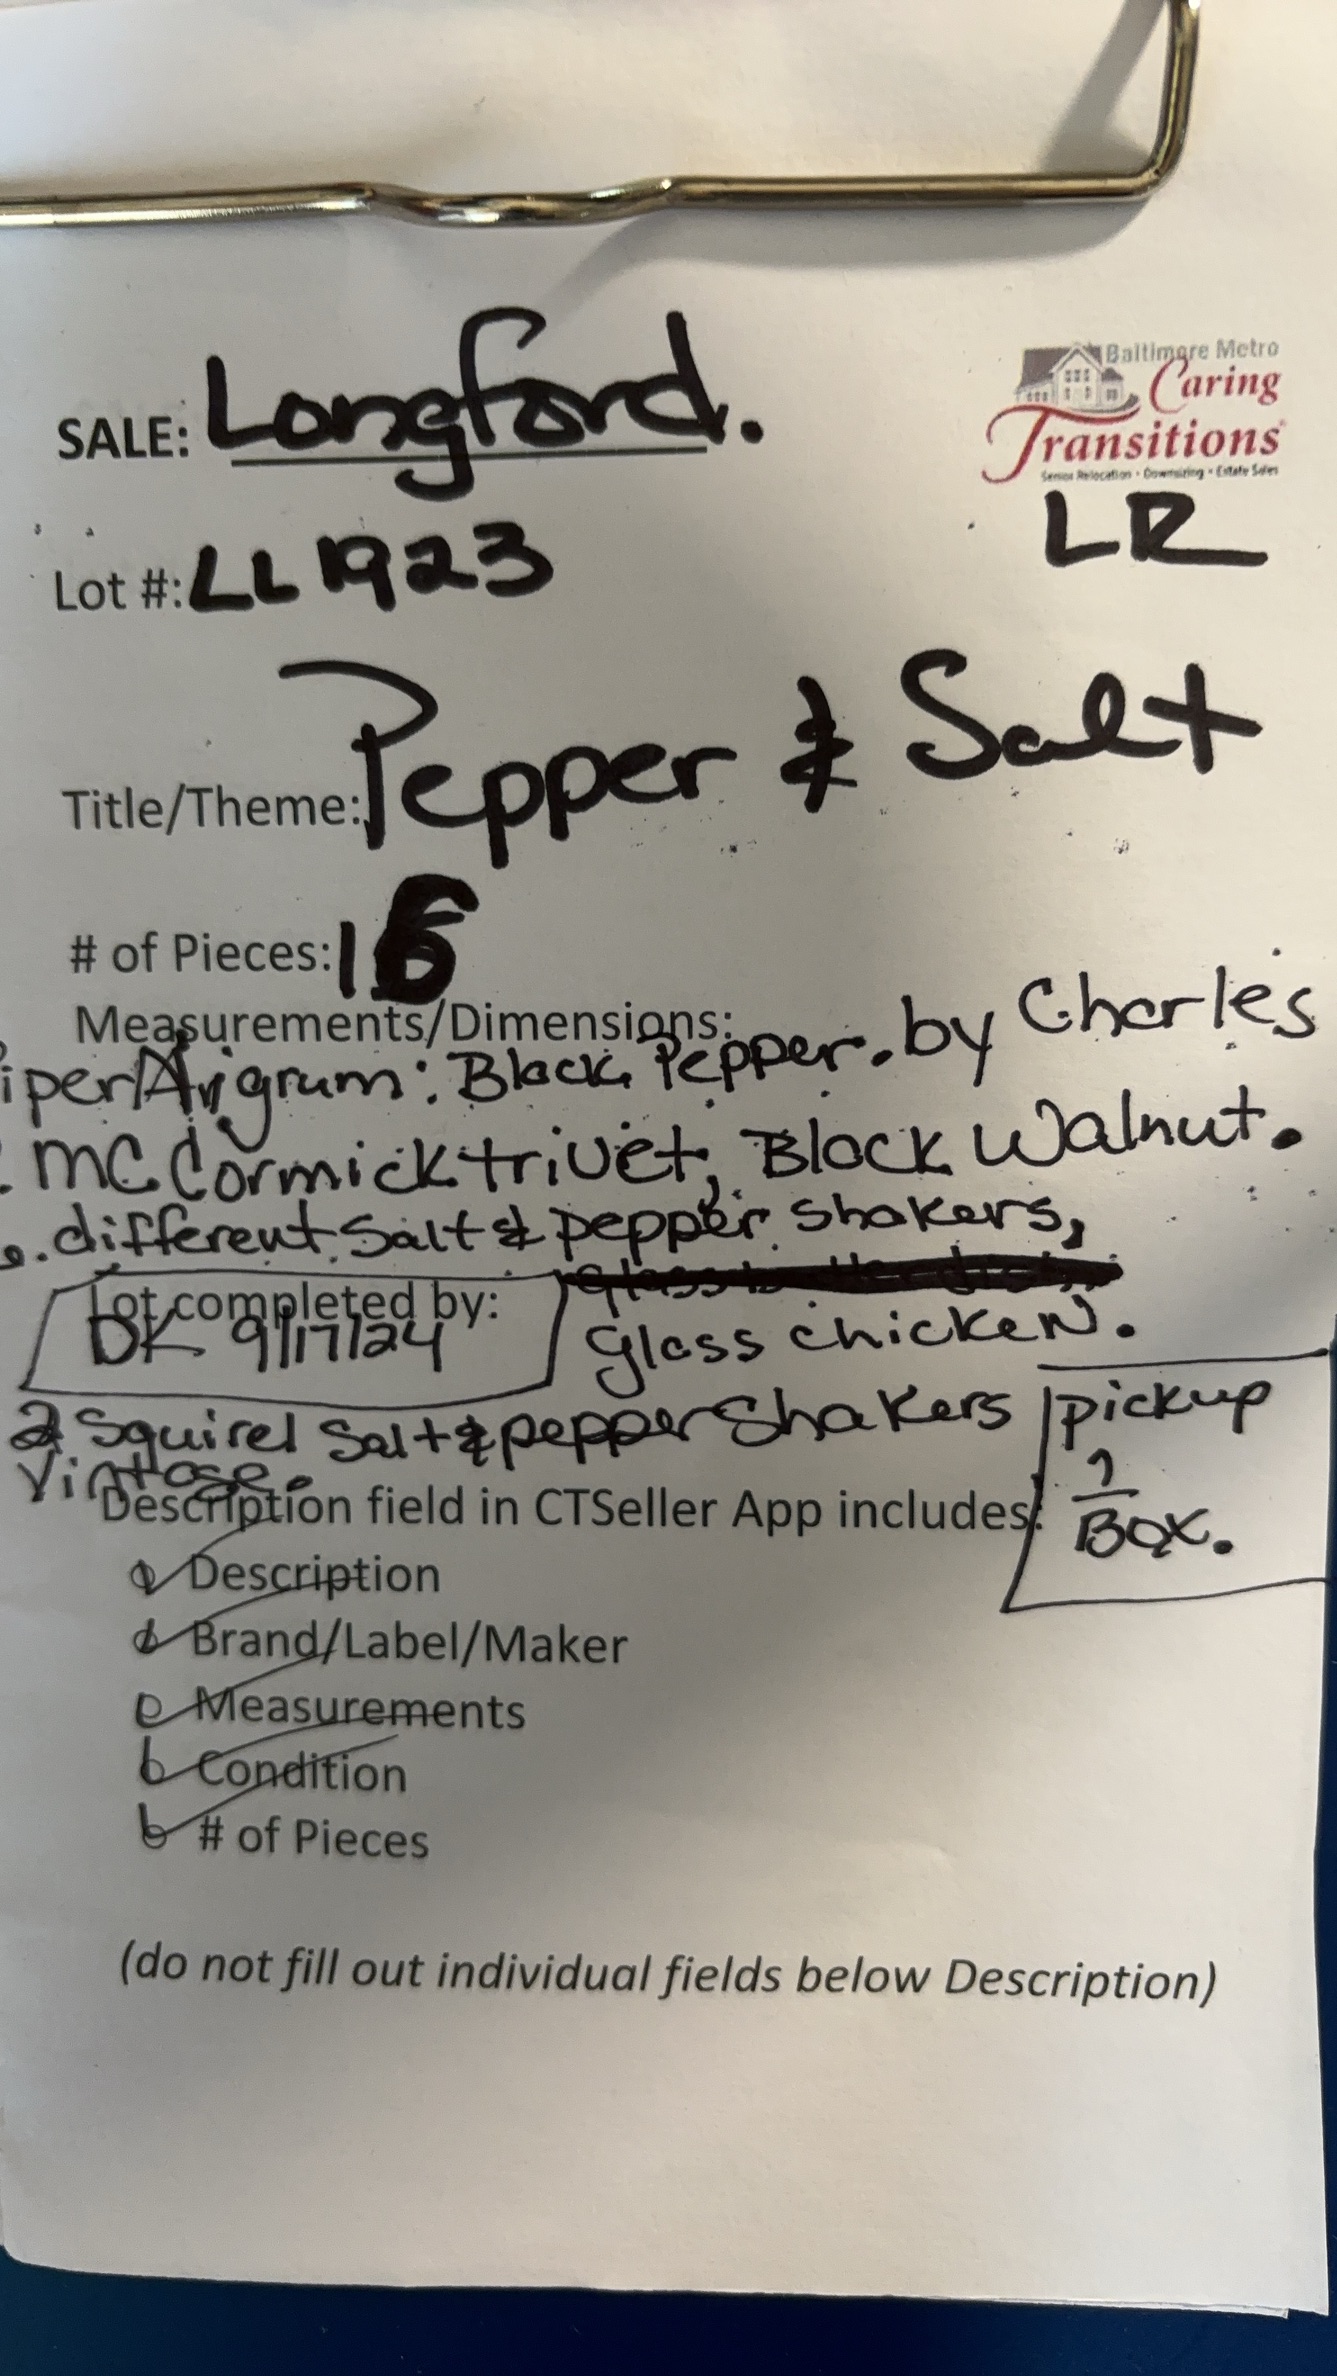 Baltimore Metro
SALE: Longford.
Caring
Transitions
Senior Relocation • Downsizing • Estate Sales
LR
Lot #: LL1923
Title/Theme: Pepper & Salt
# of Pieces: 16
Measurements/Dimensions:
Black Pepper. by Charles
McCormick trivet, Black Walnut.
different Salt & pepper shakers,
Lot completed by:
DK 9/17/24
glass chicken.
2 Squirel Salt & pepper Shakers
Vintage.
pickup
1
Box.
Description field in CTSeller App includes:
Description
Brand/Label/Maker
Measurements
Condition
# of Pieces
(do not fill out individual fields below Description)